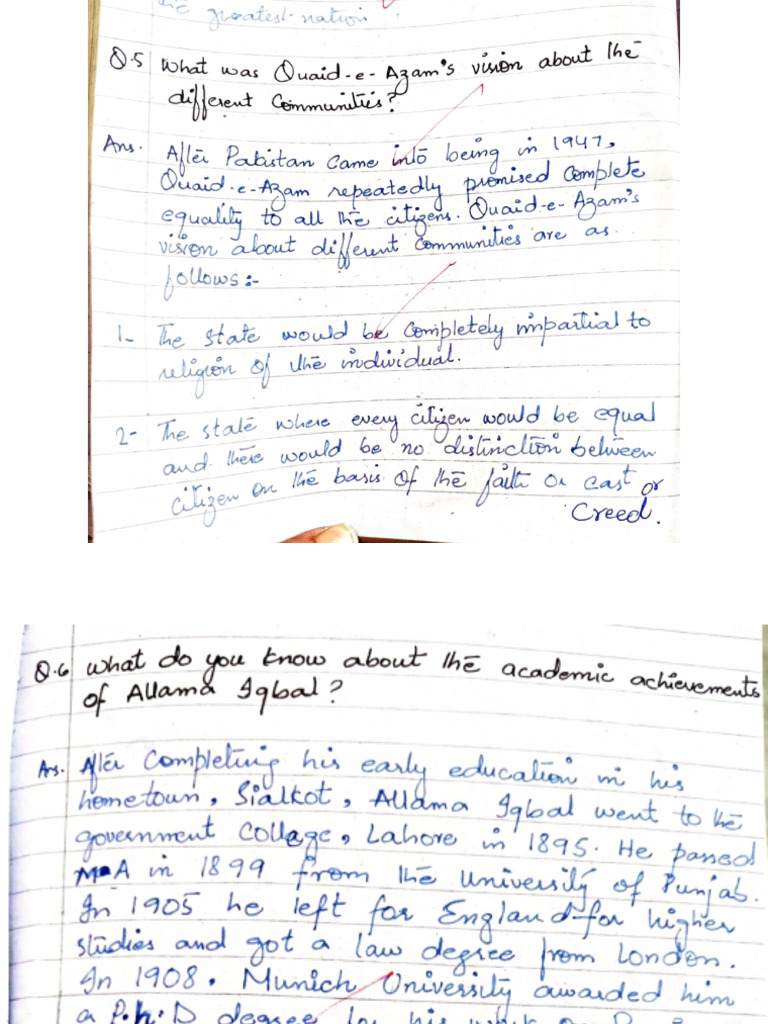 the greatest nation
Q.5 What was Quaid-e-Azam's vision about the
different Communities?
Ans. After Pakistan came into being in 1947,
Quaid-e-Azam repeatedly promised complete
equality to all the citizens. Quaid-e-Azam's
vision about different Communities are as
follows:-
1- The state would be completely impartial to
religion of the individual.
2- The state where every citizen would be equal
and there would be no distinction between
citizen on the basis of the faith or cast or
Creed.
Q.6 What do you know about the academic achievements
of Allama Iqbal?
Ans. After Completing his early education in his
hometown, Sialkot, Allama Iqbal went to the
government College, Lahore in 1895. He passed
M.A in 1899 from the University of Punjab.
In 1905 he left for England for higher
studies and got a law degree from London.
In 1908, Munich University awarded him
a P.h.D degree for his work on